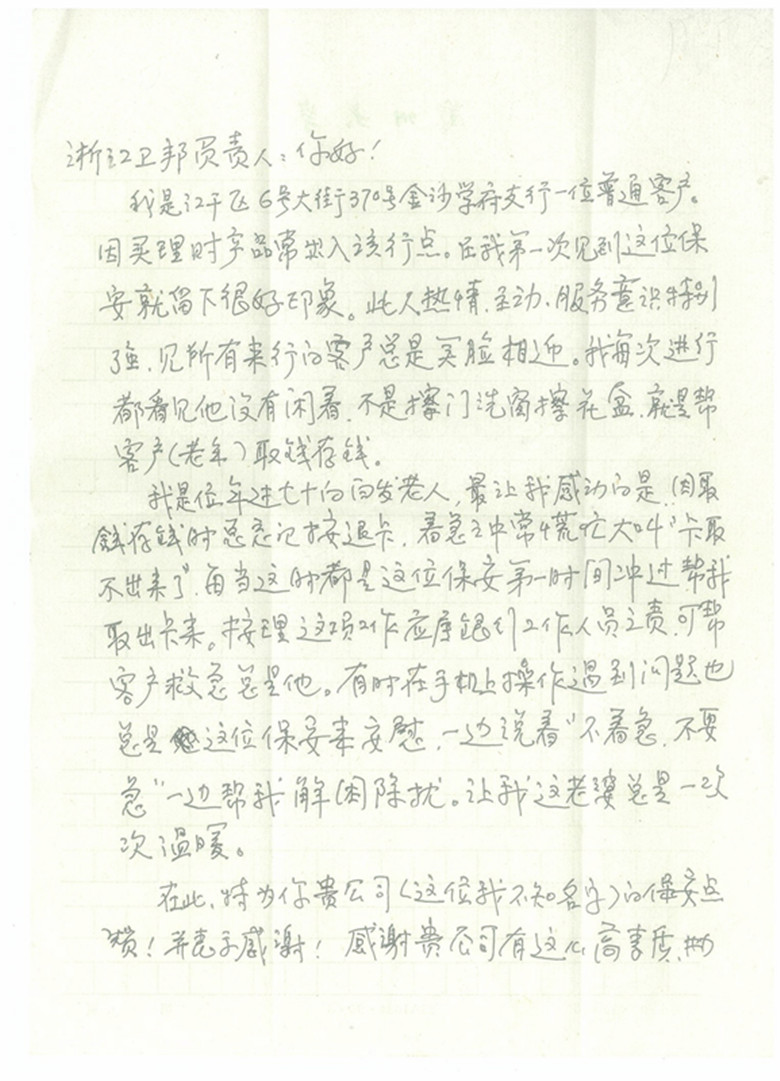 浙江卫邦负责人：你好！
我是江干区6号大街370号金沙学府支行一位普通客户。
因买理财产品常出入该行点。自我第一次见到这位保
安就留下很好印象。此人热情、主动、服务意识特别
强、见所有来行的客户总是笑脸相迎。我每次进行
都看见他没有闲着、不是擦门洗窗擦花盆、就是帮
客户（老年）取钱存钱。
我是位年过七十的白发老人，最让我感动的是、因取
钱存钱时总忘记按退卡，着急之中常慌忙大叫“卡取
不出来了”，每当这时都是这位保安第一时间冲过帮我
取出卡来。按理这项工作应属银行工作人员之责、可帮
客户救急总是他。有时在手机上操作遇到问题也
总是这位保安来安慰，一边说着“不着急、不要
急”一边帮我解困除扰。让我这老婆总是一次
次温暖。
在此、特为你贵公司（这位我不知名字）的保安点
赞！并表示感谢！感谢贵公司有这么高素质、